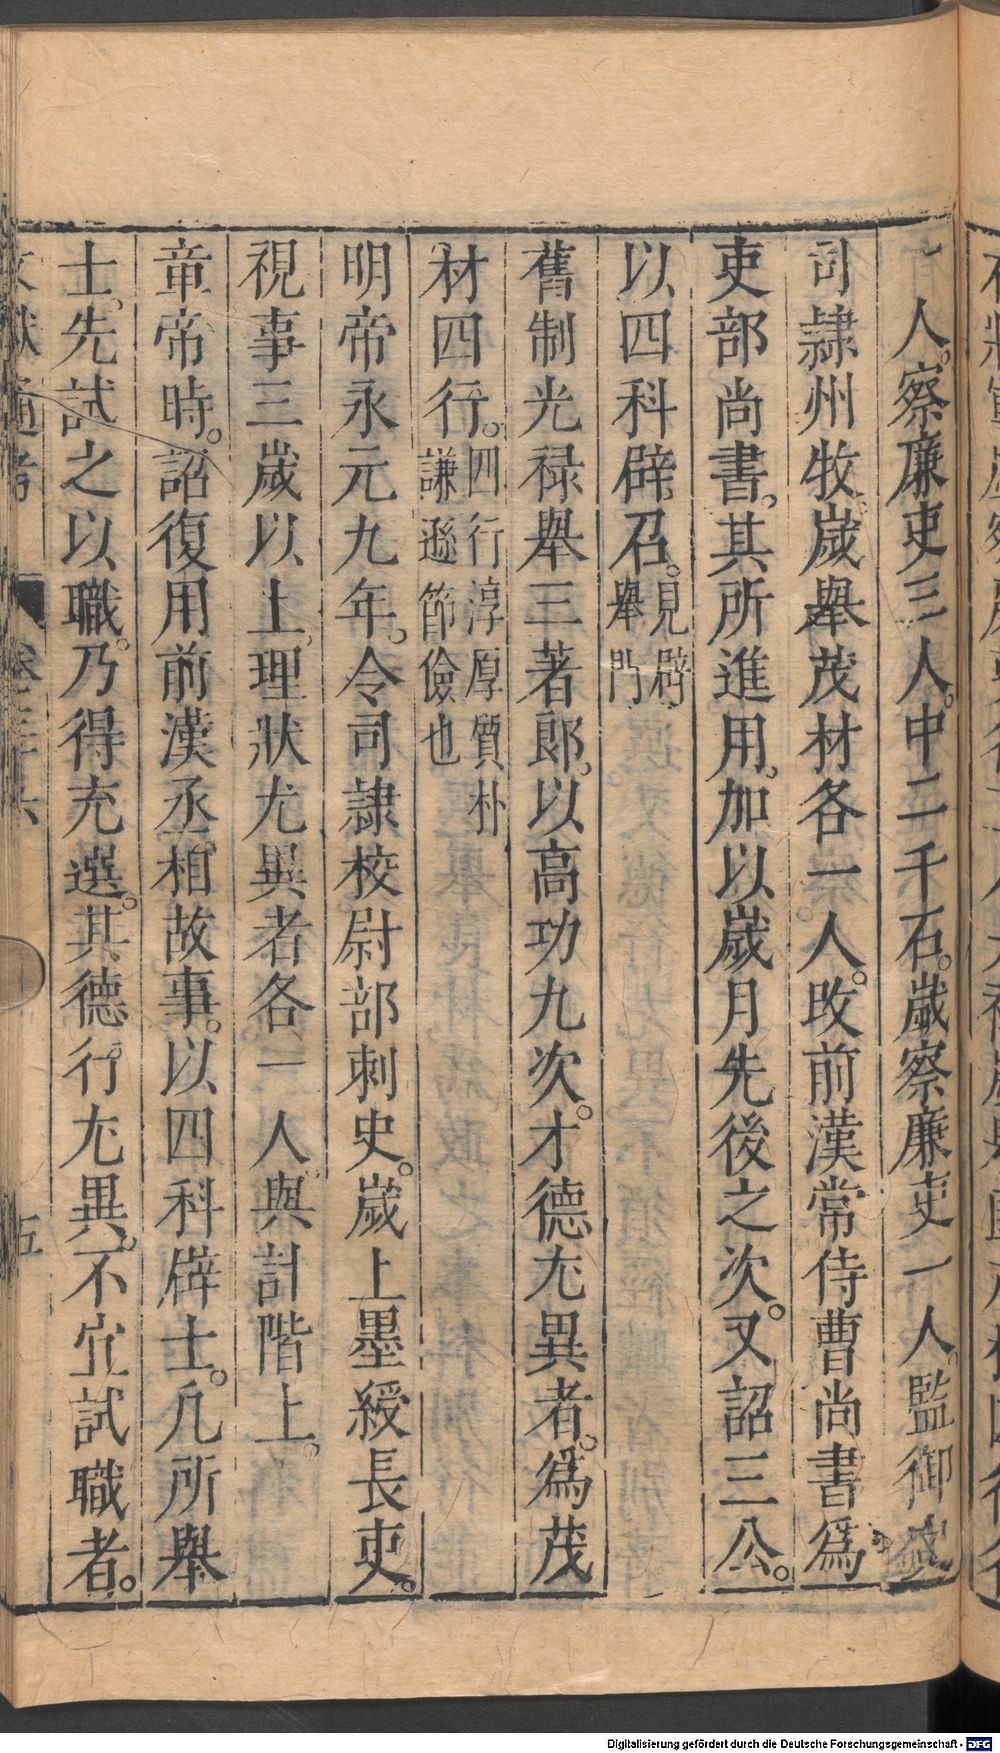 一人。察廉吏三人。中二千石。嵗察廉吏一人。監御
司隷州牧嵗舉茂材各一人。改前漢常侍曹尚書爲
吏部尚書。其所進用。加以嵗月先後之次。又詔三公。
以四科辟召。見辟舉門
舊制光祿舉三著郎。以高功九次。才德尤異者。爲茂
材四行。四行淳厚質朴謙遜節儉也
明帝永元九年。令司隷校尉部刺史。嵗上墨綬長吏。
視事三嵗以上。理狀尤異者各一人。與計階上。
章帝時。詔復用前漢丞相故事。以四科辟士。凡所舉
士。先試之以職。乃得充選。其德行尤異。不宜試職者。
文獻通考 卷三十六 五
Digitalisierung gefördert durch die Deutsche Forschungsgemeinschaft - DFG